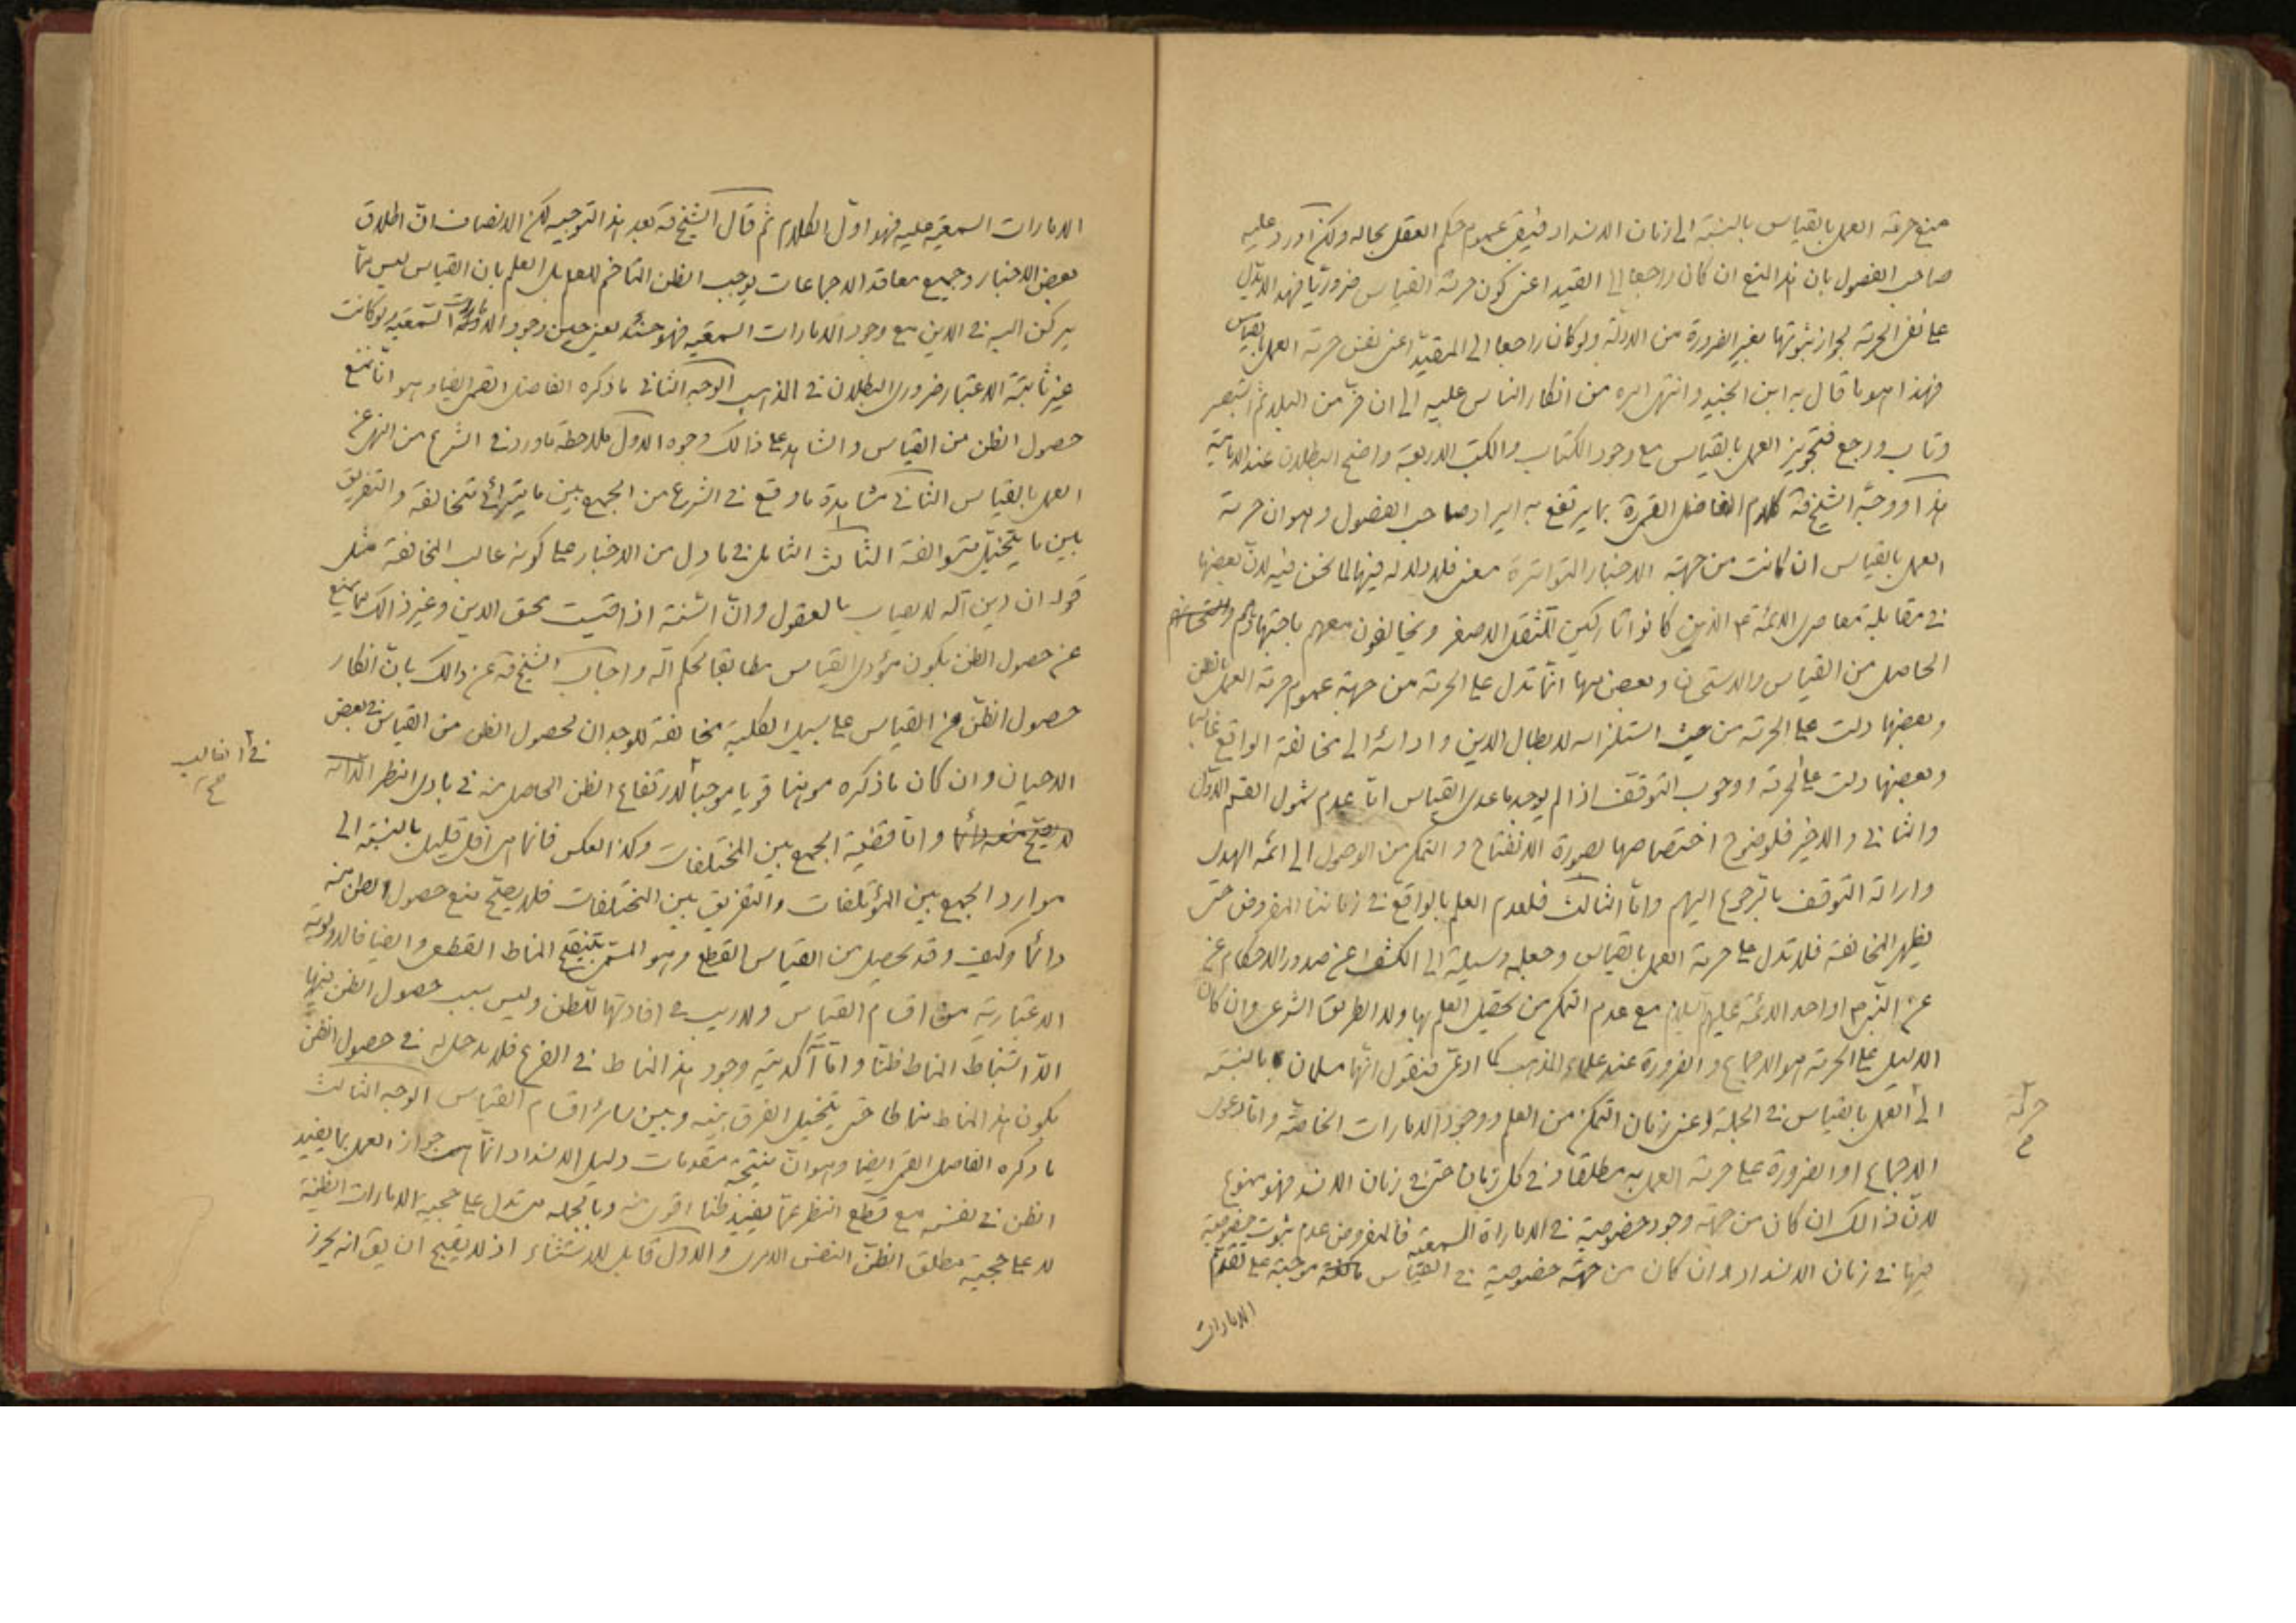 منع حرمة العمل بالقياس بالنسبة الى زمان الانسداد فيبقى عموم حكم العقل بحاله ولكن اورد عليه
صاحب الفصول بان هذا المنع ان كان راجعا الى القيد اعنى كون حرمة القياس ضروريّا فهو لا يدل
على نفى الحرمة لجواز ثبوتها بغير الضرورة من الادلّة ولو كان راجعا الى المقيّد اعنى نفس حرمة العمل بالقياس
فهذا هو ما قال به ابن الجنيد وانتهى امره من انكار الناس عليه الى ان فرّ من البلد ثم استبصر
وتاب ورجع فتجويز العمل بالقياس مع وجود الكتاب والكتب الاربعة واضح البطلان عند الامامية
هذا ووجّه الشيخ قه كلام الفاضل القمى ره بما يرتفع به ايراد صاحب الفصول وهو ان حرمة
العمل بالقياس ان كانت من جهة الاخبار المتواترة معنى فلا دلالة فيها لما نحن فيه لانّ بعضها
فى مقابلة معاصرى الائمة ع الذين كانوا تاركين للثقل الاصغر ويخالفون معهم باجتهادهم
الحاصل من القياس والاستحسان وبعض منها انّما تدل على الحرمة من جهة عموم حرمة العمل بالظن
وبعضها دلت على الحرمة من حيث استلزامه لابطال الدين وادائه الى مخالفة الواقع غالبا
وبعضها دلت على الحرمة ووجوب التوقف اذا لم يوجد ما عدى القياس امّا عدم شمول القسم الاوّل
والثانى والاخير فلوضوح اختصاصها بصورة الانفتاح والتمكن من الوصول الى ائمة الهدى
وارادة التوقف بالرجوع اليهم وامّا الثالث فلعدم العلم بالواقع فى زماننا المفروض حتى
يظهر المخالفة فلا تدل على حرمة العمل بالقياس وجعله وسيلة الى الكشف عن صدور الاحكام عن
عن النبى ص او احد الائمة عليهم السلام مع عدم التمكن من تحصيل العلم بها ولا الطريق الشرعى وان كان
الدليل على الحرمة هو الاجماع والضرورة عند علماء المذهب كما ادعى فنقول انّها مسلمان بالنسبة
الى العمل بالقياس فى الجملة اعنى زمان التمكن من العلم ووجود الامارات الخاصّة وامّا دعوى
الاجماع او الضرورة على حرمة العمل به مطلقا وفى كل زمان حتى فى زمان الانسداد فهو ممنوع
لانّ ذالك ان كان من جهة وجود خصوصية فى الاماراة السمعية فالمفروض عدم ثبوت خصوصية
فيها فى زمان الانسداد وان كان من جهة خصوصية فى القياس موجبة على تقدّم
الامارات
حرمة
الامارات السمعية عليه فهو اوّل الكلام ثم قال الشيخ قه بعد هذا التوجيه لكن الانصاف انّ اطلاق
بعض الاخبار وجميع معاقد الاجماعات يوجب الظن المتاخم للعلم بل العلم بان القياس ليس ممّا
يركن اليه فى الدين مع وجود الامارات السمعية فهو حينئذ يعنى حين وجود الامارات السمعية ولو كانت
غير ثابتة الاعتبار ضرورى البطلان فى المذهب الوجه الثانى ما ذكره الفاضل القمى ايضا وهو انّا نمنع
حصول الظن من القياس والشاهد على ذالك وجوه الاول ملاحظة ما ورد فى الشرع من النهى عن
العمل بالقياس الثانى مشاهدة ما وقع فى الشرع من الجمع بين ما يترائى متخالفة والتفريق
بين ما يتخيّل متوالفة الثالث التامل فى ما دل من الاخبار على كونه غالب المخالفة مثل
قوله ان دين الله لا يصاب بالعقول وانّ السّنة اذا قيست محق الدين وغير ذالك مما يمنع
عن حصول الظن بكون مؤدى القياس مطابقا لحكم الله واجاب الشيخ قه عن ذالك بانّ انكار
حصول الظنّ من القياس على سبيل الكلية مخالفة للوجدان لحصول الظن من القياس فى بعض
الاحيان وان كان ما ذكره موهنا قويا موجبا لارتفاع الظن الحاصل منه فى بادى النظر الّا انه
لا يصحّ منعه دائما وامّا قضية الجمع بين المختلفات وكذا العكس فانما هى اقل قليل بالنسبة الى
موارد الجمع بين المؤتلفات والتفريق بين المختلفات فلا يصحّ منع حصول الظن منه
دائما وكيف وقد يحصل من القياس القطع وهو المسمّى بتنقيح المناط القطعى وايضا فالاولوية
الاعتبارية من اقسام القياس ولا ريب فى افادتها للظن وليس سبب حصول الظن فيها
الّا استنباط المناط ظنّا وامّا آكديّة وجود هذا المناط فى الفرع فلا مدخل له فى حصول الظن
بكون هذا المناط مناطا حتى يتخيل الفرق بينه وبين سائر اقسام القياس الوجه الثالث
ما ذكره الفاضل القمى ايضا وهو انّ نتيجة مقدمات دليل الانسداد انّما هى جواز العمل بما يفيد
الظن فى نفسه مع قطع النظر عمّا يفيد ظنا اقوى منه وبالجمله هى تدل على حجية الامارات الظنية
لا على حجية مطلق الظنّ النفس الامرى والاوّل قابل للاستثناء اذ لا يقبح ان يق انه يجوز
فى الغالب
صح